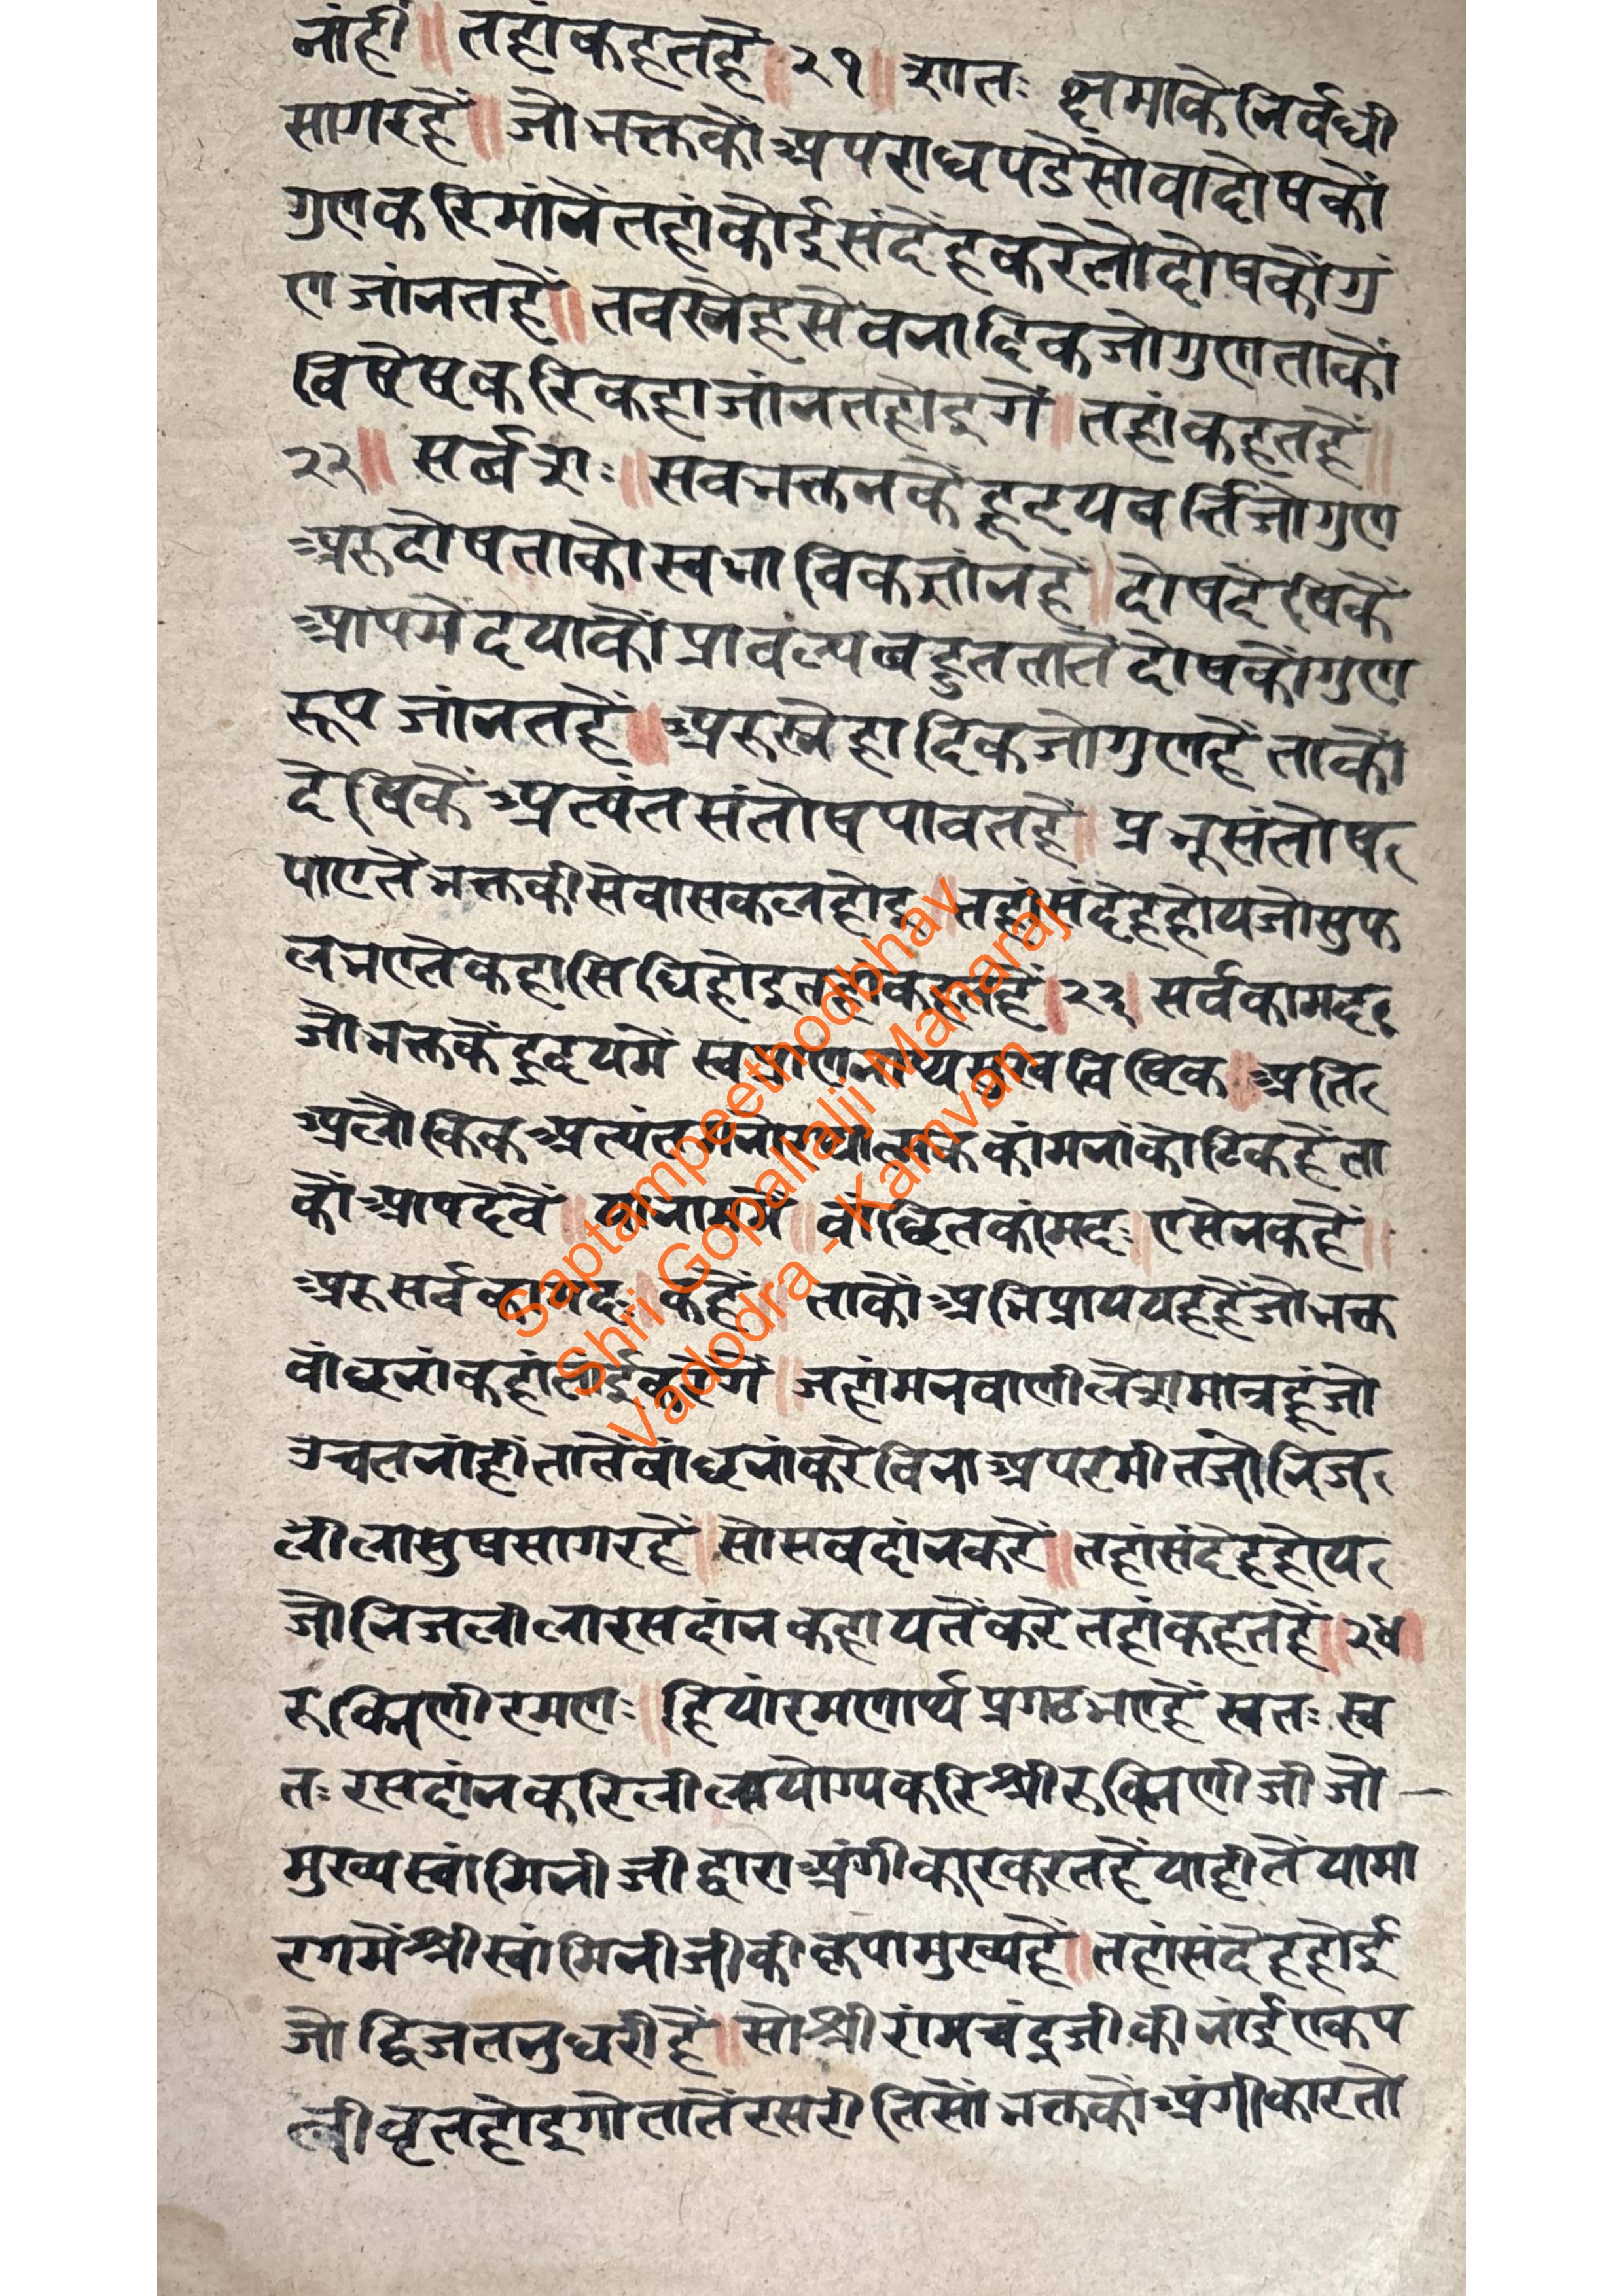 नांहीं ॥ तहां कहतहै ॥ २१ ॥ शांतः क्षमाके निर्वधी
सागरहैं ॥ जो भक्तकों अपराध पडै सो वा दोषकों
गुण करि मांनें तहां कोई संदेह करै तो दोषकों गु
ण जांनतहैं ॥ तब स्नेह सेवनादिक जो गुण ताकों
विषेष करि कहा जांनत होइगें ॥ तहां कहतहैं ॥
२२ ॥ सर्व्वज्ञः ॥ सब भक्तनकें हृदयवर्त्ति जो गुण
अरु दोष ताको स्वभाविक जांनहैं ॥ दोष देषिकें
आपमें दयाकों प्राबल्य बहुत तातें दोषकों गुण
रूप जांनतहैं ॥ अरु स्नेहादिक जो गुणहैं ताकों
देषिकें अत्यंत संतोष पावतहैं ॥ प्रभू संतोष
पाएतें भक्तकी सेवा सफल होइ ॥ तहां संदेह होय जो सुफ
ल भएतें कहा सिधि होइ तहां कहतहैं ॥ २३ ॥ सर्वकामदः
जो भक्तकें हृदयमें स्वप्राणनाथ्य मुख विषिक ॥ अति
अलौकिक अत्यंत कांमनां कोटिक हैं ता
कों आप देवें ॥ या नाममें ॥ वांछित कांमदः ॥ एसें न कहैं ॥
अरु सर्वकामदः ॥ कहैं ॥ ताकों अभिप्राय यह हैं जो भक्त
वांछनां कहां तांई करेंगें ॥ जहां मन वाणी लेशमात्र हूं जो
उचत नांहीं तातें वांछनां करे विना अपरमीत जो निज
लीला सुष सागरहैं ॥ सो सब दांन करैं ॥ तहां संदेह होय
जो निज लीला रस दांन कहा यतें करें तहां कहतहैं ॥ २४ ॥
रुक्मिणी रमणः ॥ हियां रमणार्थ प्रगट भएहैं स्वतः स्व
तः रसदांन करि लीला योग्य करि श्री रुक्मिणीजी जो
मुख्य स्वांमिनीजी द्वारा अंगीकार करतहैं याही तें या मा
रगमें श्री स्वांमिनीजीकी कृपा मुख्यहैं ॥ तहां संदेह होई
जो द्विज तनु धरीहैं ॥ सो श्री रांमचंद्रजीकी नांई एक प
त्नी वृत होइगो तातें रस रीतिसों भक्तकों अंगीकार तो
Saptampeethodbhav
Shri Gopallalji Maharaj
Vadodra - Kamvan